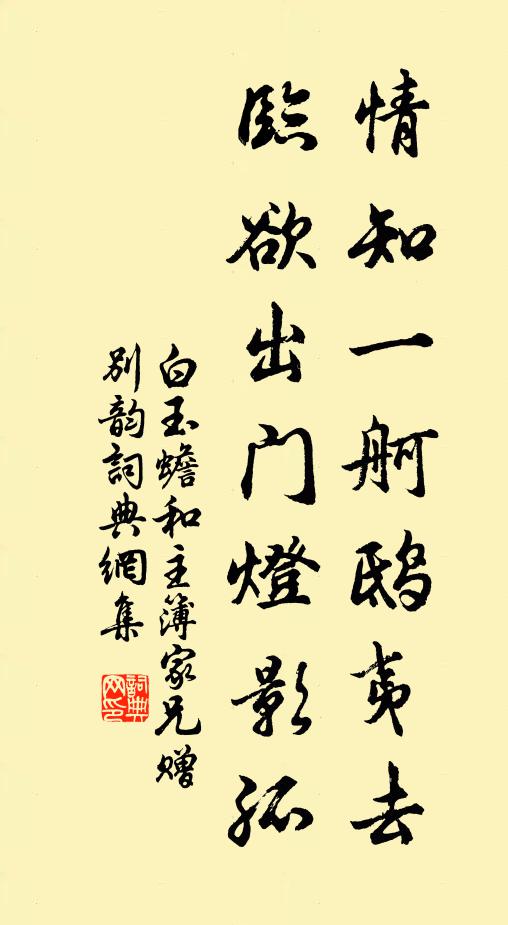 情知一舸鸱夷去
臨欲出门燈影孤
白玉蟾和主簿家兄赠
别韵詞典網集
詞典网印